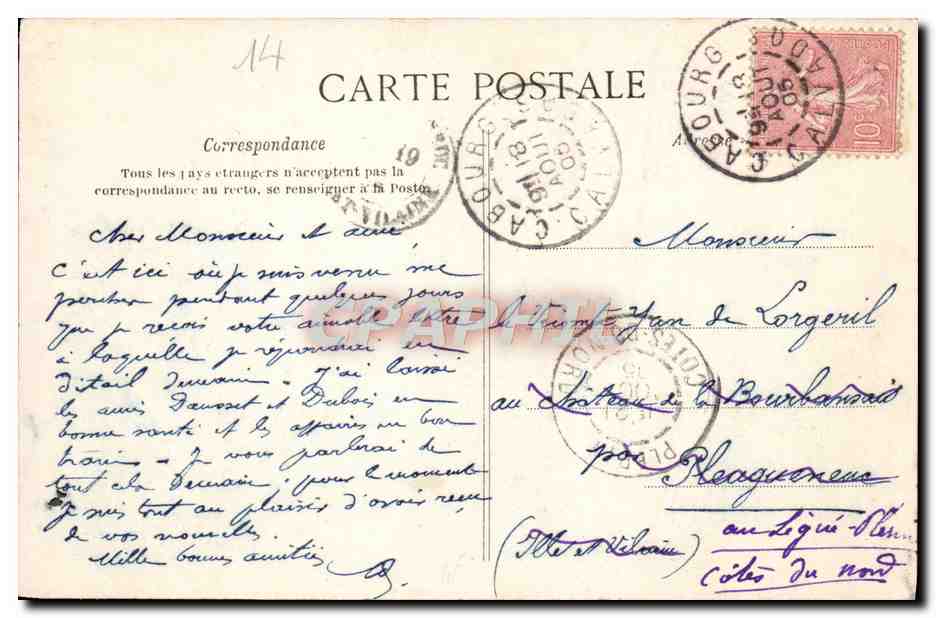 14
CARTE POSTALE
Correspondance
Tous les pays étrangers n'acceptent pas la
correspondance au recto, se renseigner à la Poste
Cher Monsieur et ami,
C'est ici où je suis venu me
percher pendant quelques jours
que je reçois votre aimable lettre
à laquelle je répondrai en
détail demain. J'ai laissé
les amis Dausset et Dubois en
bonne santé et les affaires en bon
train. Je vous parlerai de
tout cela demain, pour le moment
je suis tout au plaisir d'avoir reçu
de vos nouvelles.
Mille bonnes amitiés
CABOURG
CALVADOS
18
AOUT
05
CABOURG
CALVADOS
18
AOUT
05
10c
19
ET-VILAINE
Monsieur
le Vicomte Yan de Lorgeril
au château de la Bourbansais
par Pleugueneuc
(Ille et Vilaine)
au Légué-Plérin
Côtes du Nord
COTES-DU-NORD